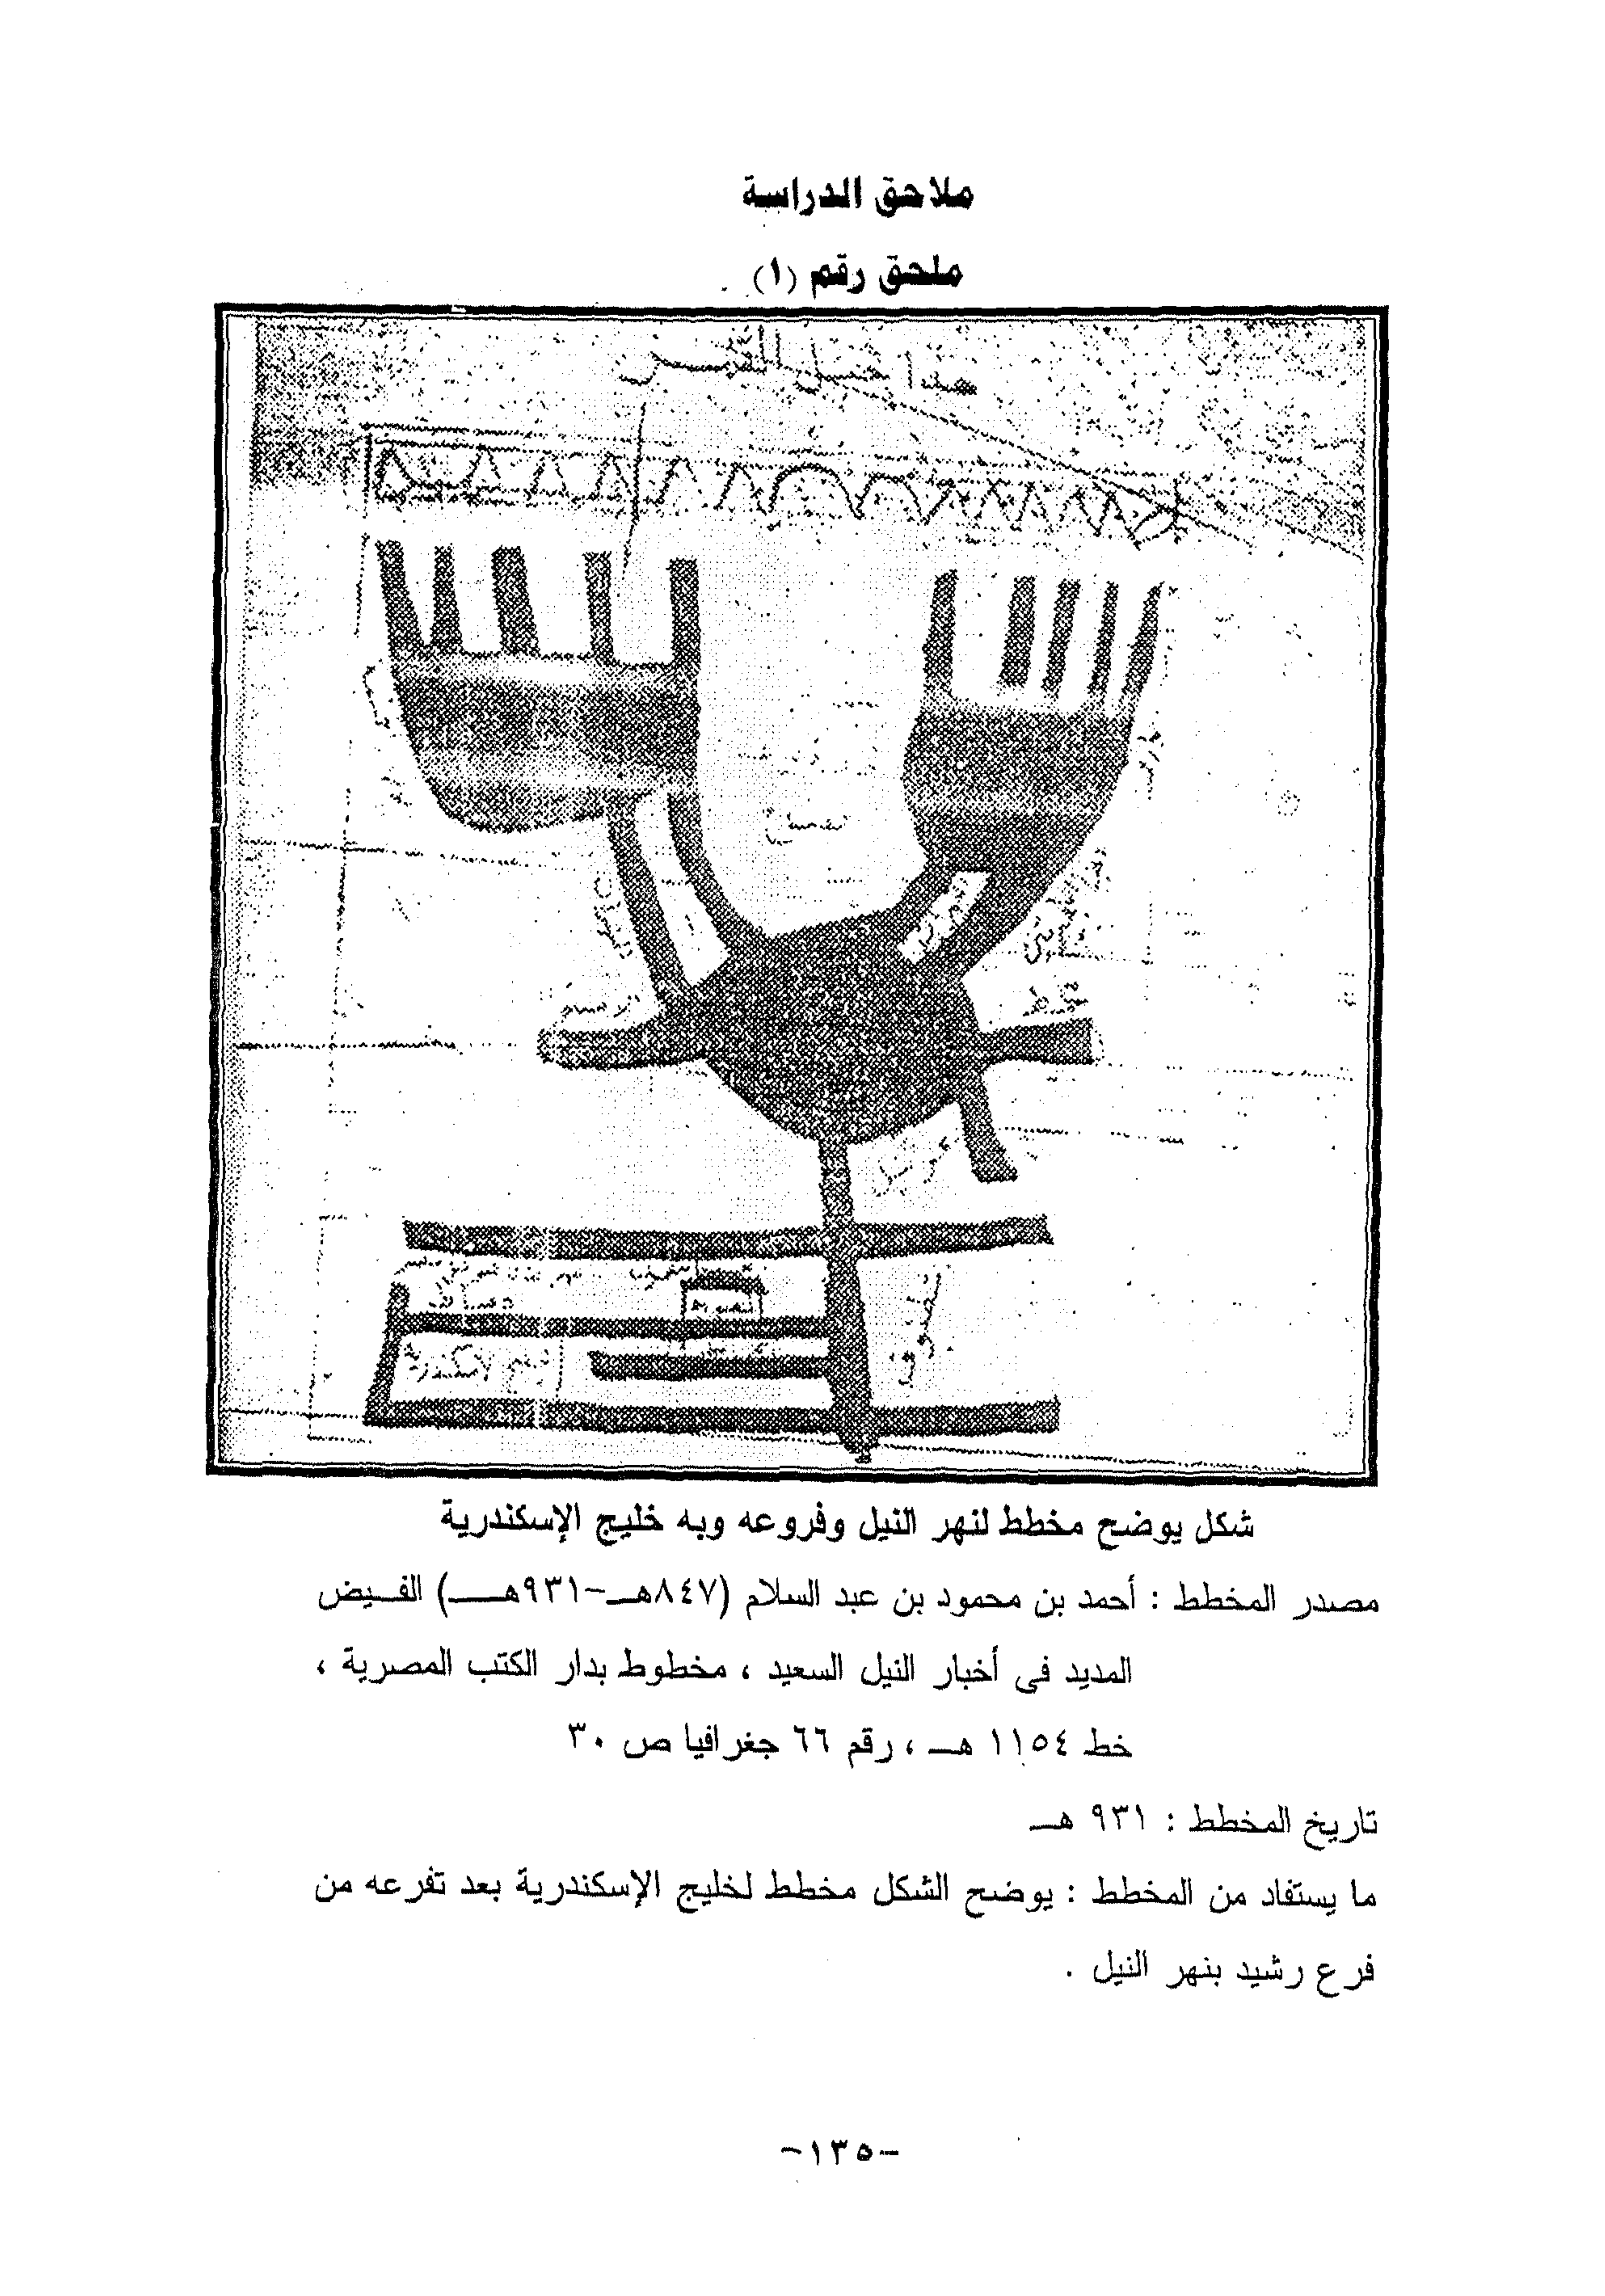 ملاحق الدراسة
ملحق رقم (١)
هذا جبل القمر
شكل يوضح مخطط لنهر النيل وفروعه وبه خليج الإسكندرية
مصدر المخطط : أحمد بن محمود بن عبد السلام (٨٤٧هـ-٩٣١هـ) الفيض
المديد فى أخبار النيل السعيد ، مخطوط بدار الكتب المصرية ،
خط ١١٥٤ هـ ، رقم ٦٦ جغرافيا ص ٣٠
تاريخ المخطط : ٩٣١ هـ
ما يستفاد من المخطط : يوضح الشكل مخطط لخليج الإسكندرية بعد تفرعه من
فرع رشيد بنهر النيل .
-١٣٥-